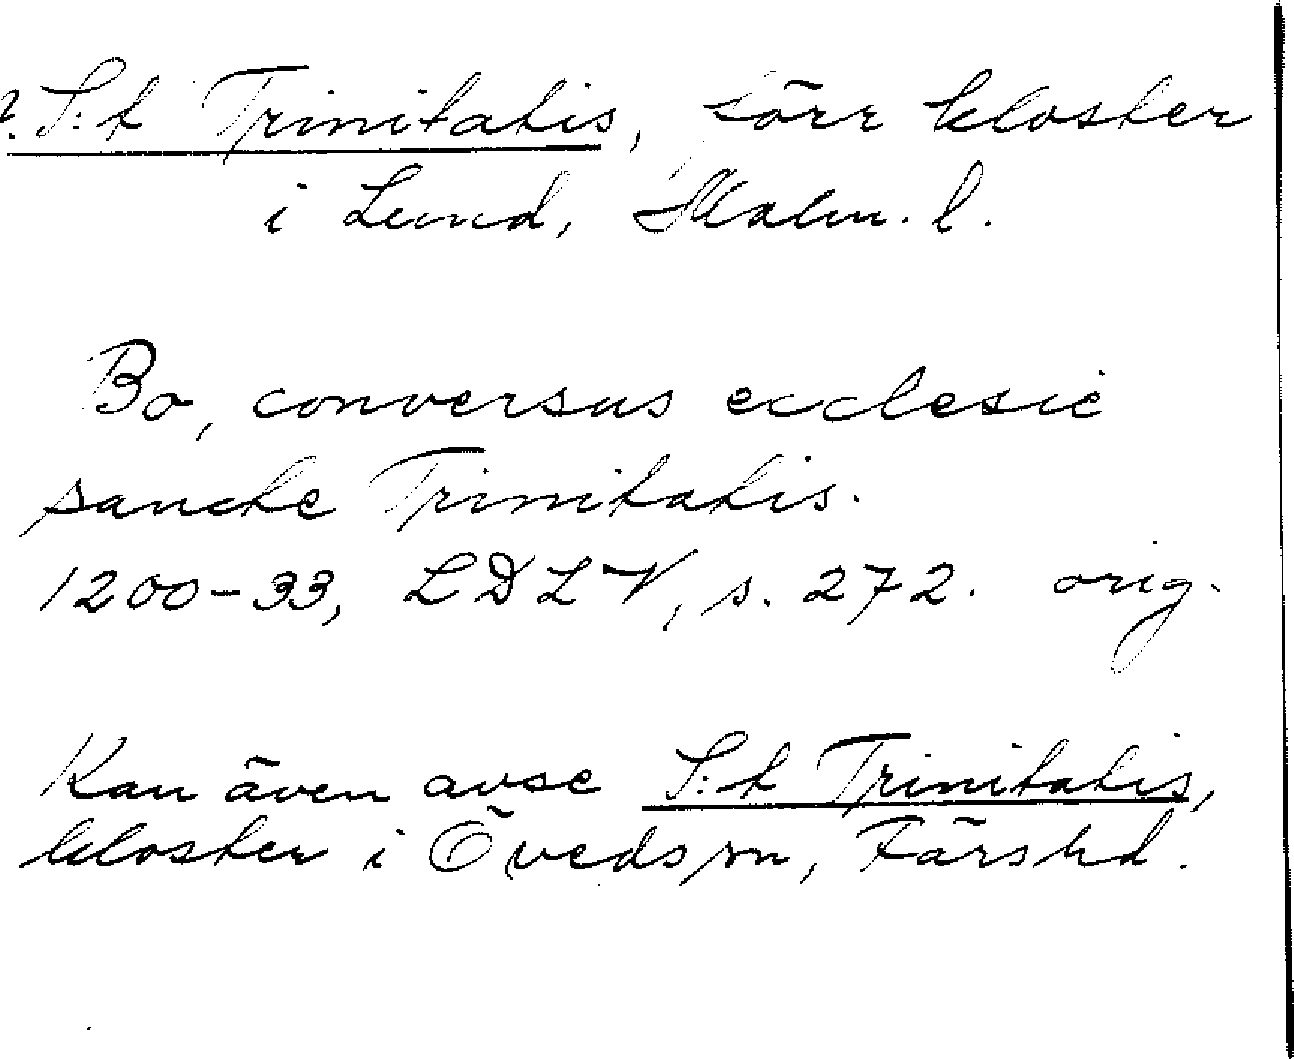 ?. S:t Trinitatis, förr kloster
i Lund, Malm. l.
Bo, conversus ecclesie
sancte Trinitatis.
1200-33, LDLV, s. 272. orig.
Kan även avse S:t Trinitatis,
kloster i Öveds sn, Färs hd.